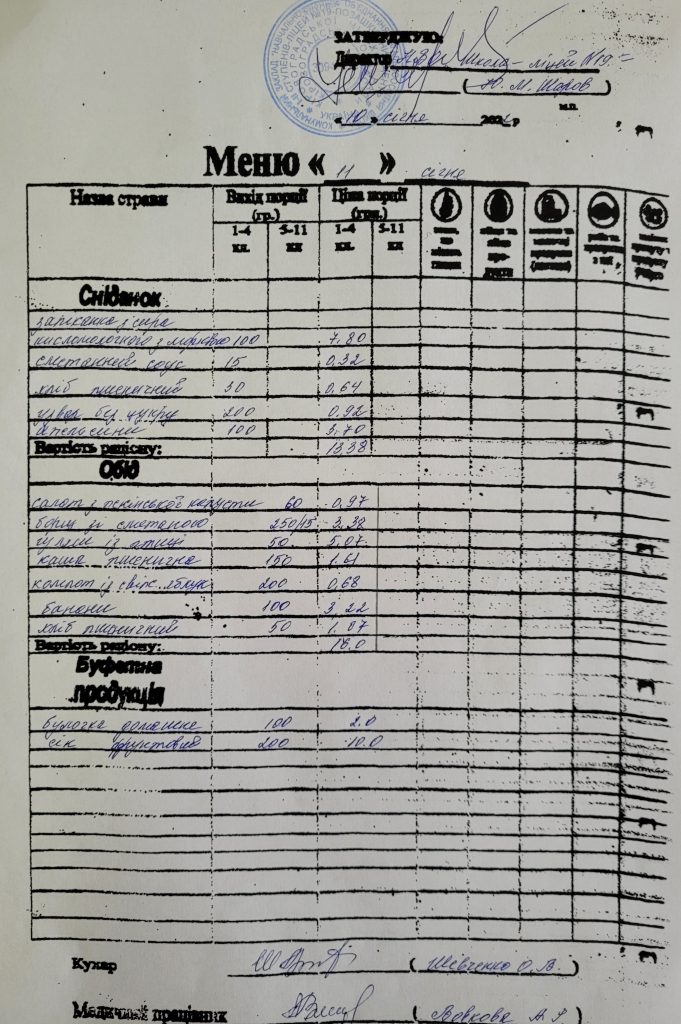 ЗАТВЕРДЖУЮ:
Директор НВО Школа-ліцей №19
( Ю. М. Шаров )
м.п.
« 10 » січня 202 р
Меню « 11 » січня
Назва страви Вихід порції (гр.) Ціна порції (грн.)
1-4 кл. 5-11 кл 1-4 кл. 5-11 кл
Сніданок
запіканка з сира
кисломолочного з морквою 100 7.80
сметанний соус 15 0,32
хліб пшеничний 30 0,64
узвар без цукру 200 0,92
апельсини 100 3,70
Вартість раціону: 13.38
Обід
салат з пекінської капусти 60 0,97
борщ зі сметаною 250/15 3.38
гуляш із птиці 50 5,07
каша пшенична 150 1.61
компот із свіж. яблук 200 0,68
банани 100 3,22
хліб пшеничний 50 1.07
Вартість раціону: 16.0
Буфетна
продукція
булочка домашня 100 2.0
сік фруктовий 200 10.0
Кухар ( Шевченко О.В. )
Медичний працівник ( Вовкова )